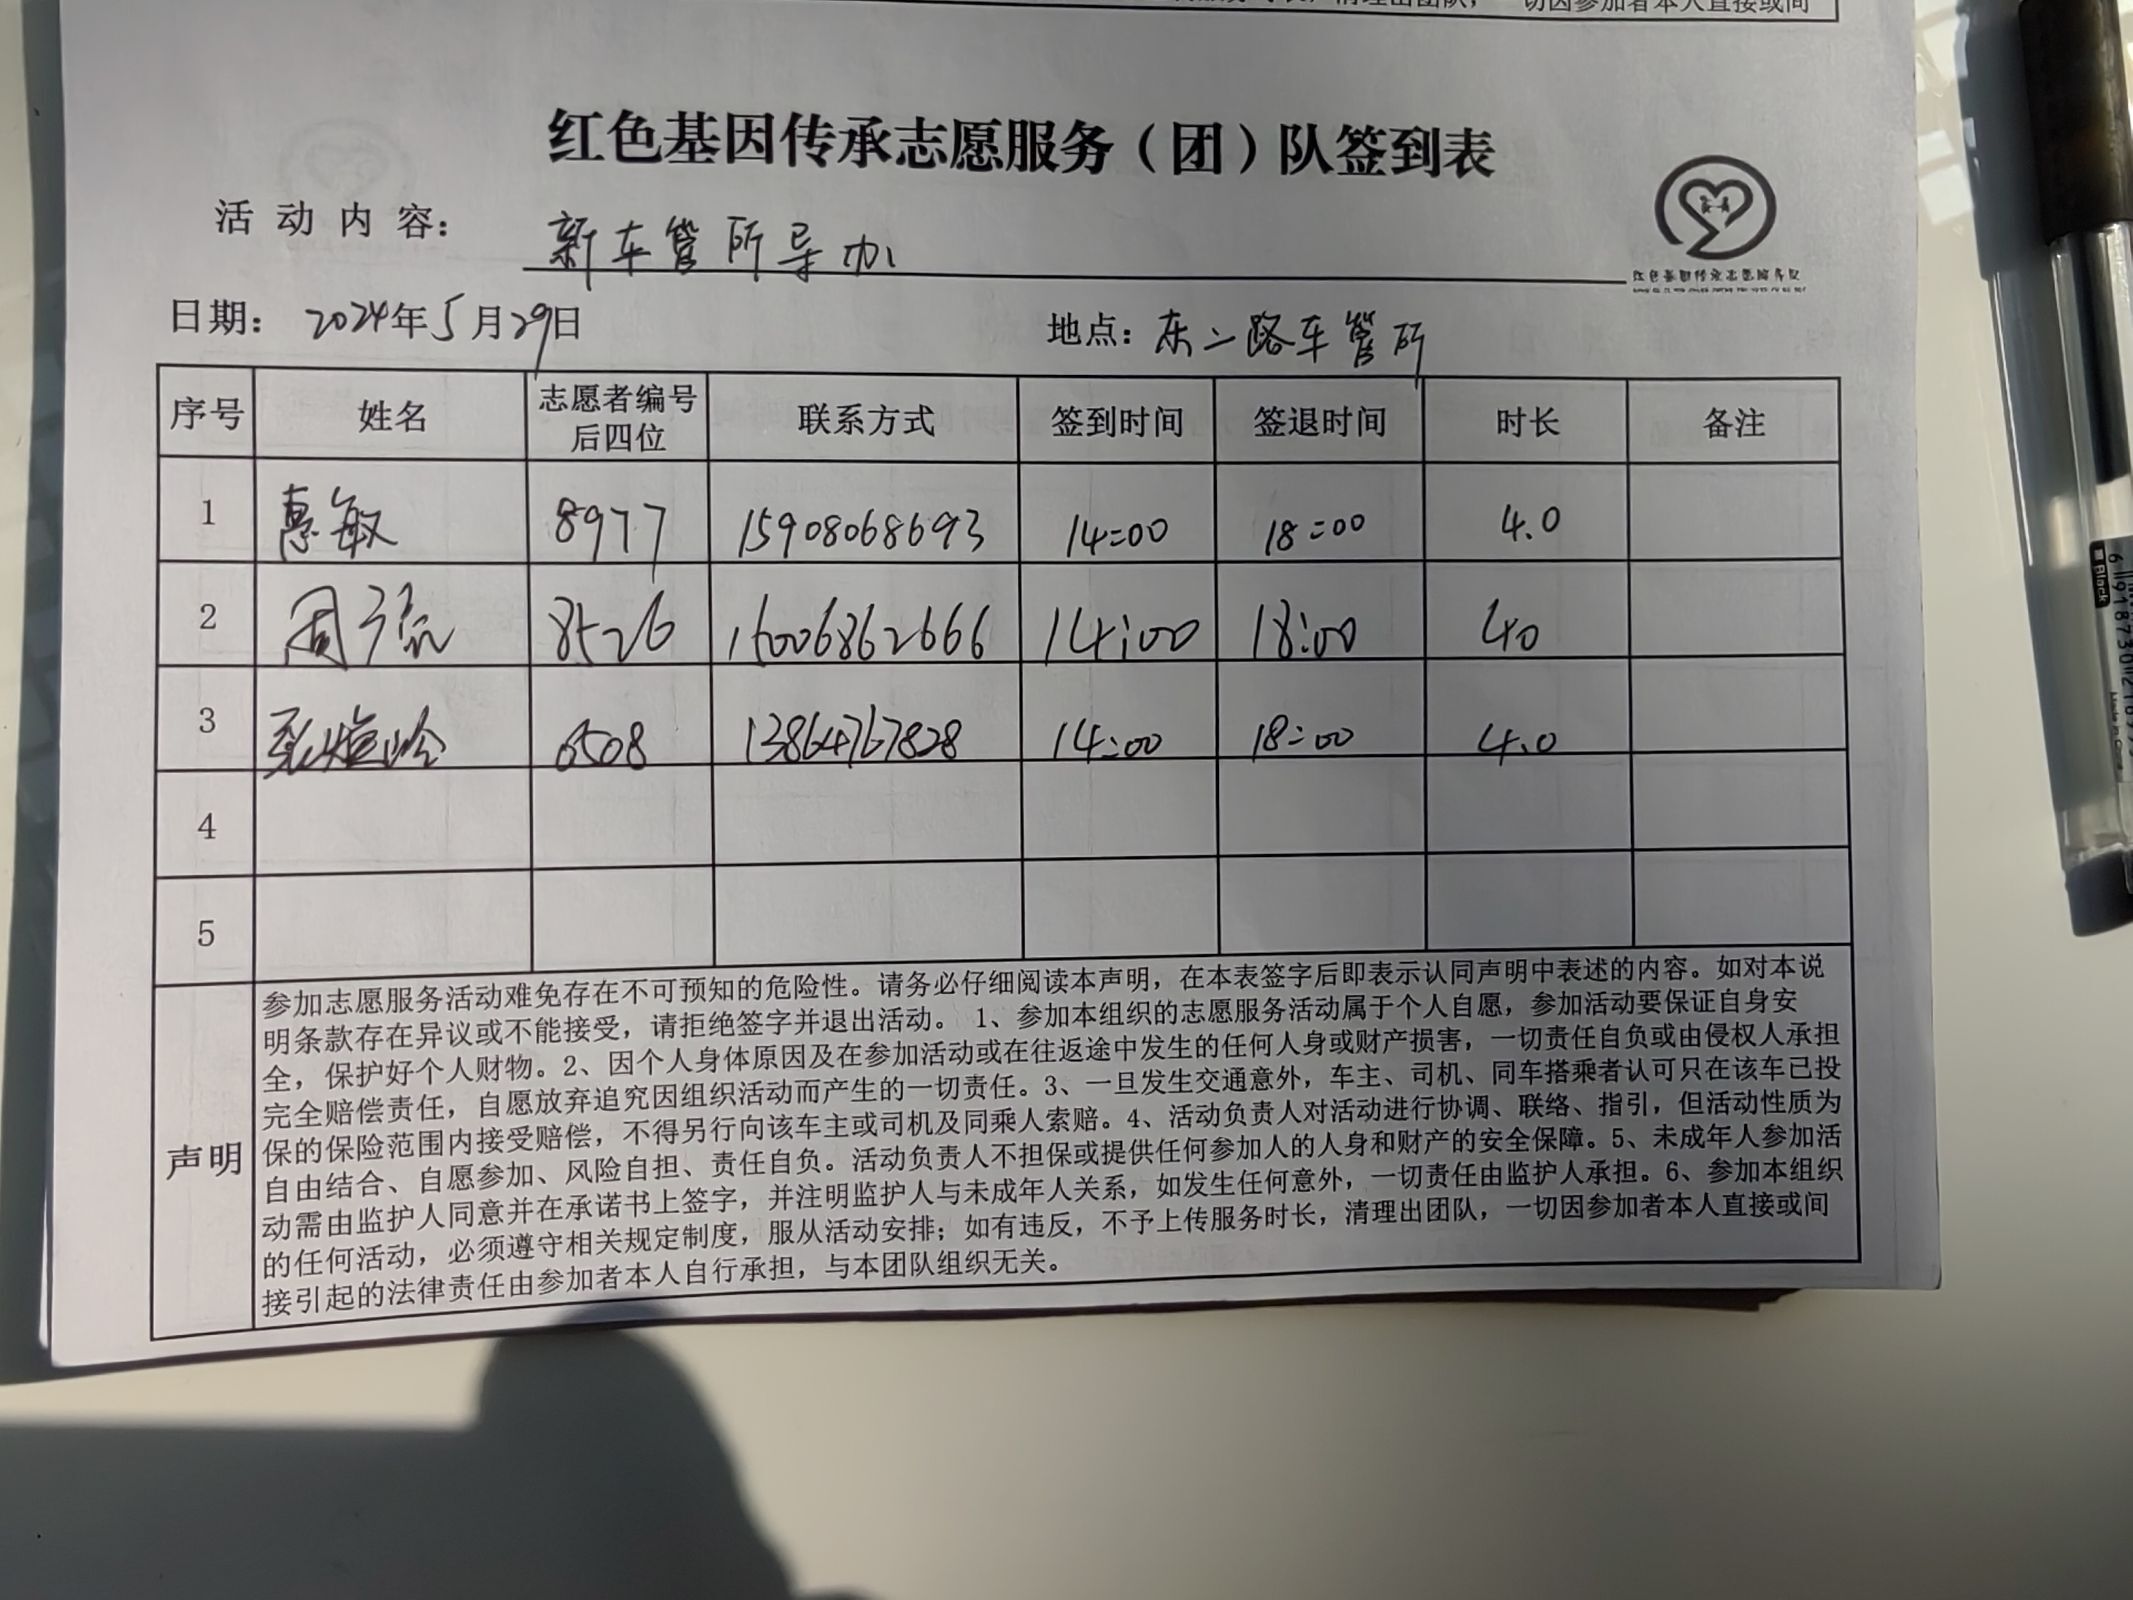 切因参加者本人直接或间
红色基因传承志愿服务（团）队签到表
活动内容： 新车管所导办
红色基因传承志愿服务队
日期： 2024年5月29日 地点：东二路车管所
序号 姓名 志愿者编号后四位 联系方式 签到时间 签退时间 时长 备注
1 惠敏 8977 15908068693 14:00 18:00 4.0
2 周 8526 16006862666 14:00 18:00 40
3 6508 13864767828 14:00 18:00 4.0
4
5
声明
参加志愿服务活动难免存在不可预知的危险性。请务必仔细阅读本声明，在本表签字后即表示认同声明中表述的内容。如对本说
明条款存在异议或不能接受，请拒绝签字并退出活动。 1、参加本组织的志愿服务活动属于个人自愿，参加活动要保证自身安
全，保护好个人财物。2、因个人身体原因及在参加活动或在往返途中发生的任何人身或财产损害，一切责任自负或由侵权人承担
完全赔偿责任，自愿放弃追究因组织活动而产生的一切责任。3、一旦发生交通意外，车主、司机、同车搭乘者认可只在该车已投
保的保险范围内接受赔偿，不得另行向该车主或司机及同乘人索赔。4、活动负责人对活动进行协调、联络、指引，但活动性质为
自由结合、自愿参加、风险自担、责任自负。活动负责人不担保或提供任何参加人的人身和财产的安全保障。5、未成年人参加活
动需由监护人同意并在承诺书上签字，并注明监护人与未成年人关系，如发生任何意外，一切责任由监护人承担。6、参加本组织
的任何活动，必须遵守相关规定制度，服从活动安排；如有违反，不予上传服务时长，清理出团队，一切因参加者本人直接或间
接引起的法律责任由参加者本人自行承担，与本团队组织无关。
Black